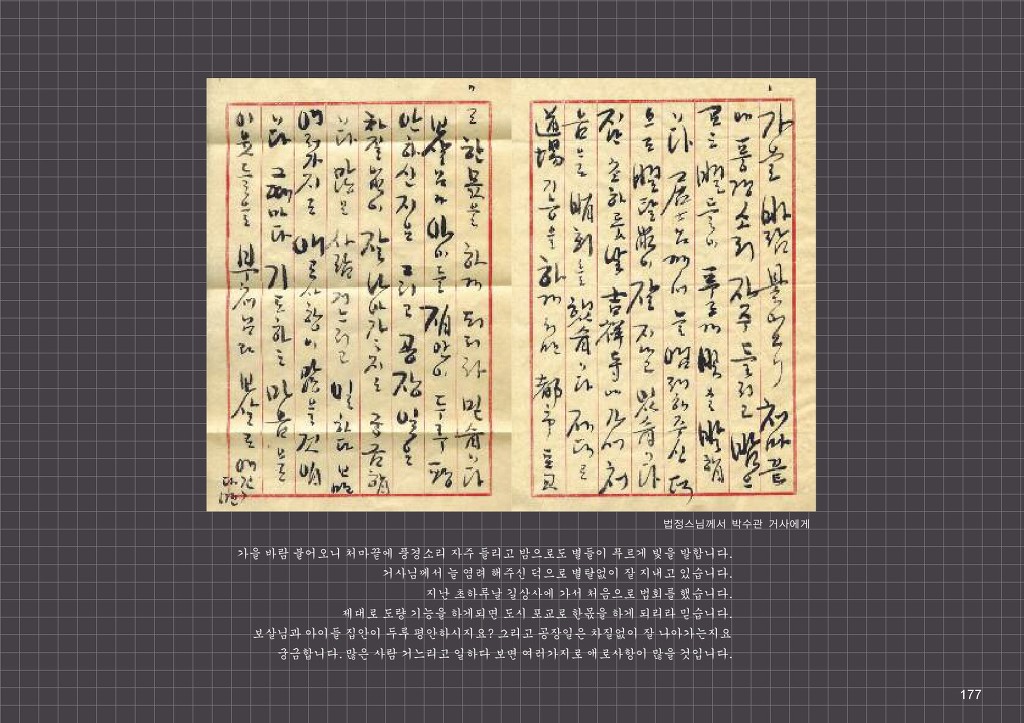 가을 바람 불어오니 처마끝
에 풍경소리 자주 들리고 밤으
로는 별들이 푸르게 빛을 발합
니다 居士님께서 늘 염려해주신 덕
으로 별탈없이 잘 지내고 있습니다
지난 초하룻날 吉祥寺에 가서 처
음으로 법회를 했습니다 제대로
道場 기능을 하게되면 都市 포교
로 한몫을 하게 되리라 믿습니다
보살님과 아이들 집안이 두루 평
안하신지요 그리고 공장일은
차질없이 잘 나아가는지요 궁금합
니다 많은 사람 거느리고 일하다 보면
여러가지로 애로사항이 많을 것입
니다 그때마다 기도하는 마음으로
이웃들을 부처님과 보살로 여긴
법정스님께서 박수관 거사에게
가을 바람 불어오니 처마끝에 풍경소리 자주 들리고 밤으로도 별들이 푸르게 빛을 발합니다.
거사님께서 늘 염려 해주신 덕으로 별탈없이 잘 지내고 있습니다.
지난 초하루날 길상사에 가서 처음으로 법회를 했습니다.
제대로 도량 기능을 하게되면 도시 포교로 한몫을 하게 되리라 믿습니다.
보살님과 아이들 집안이 두루 평안하시지요? 그리고 공장일은 차질없이 잘 나아가는지요
궁금합니다. 많은 사람 거느리고 일하다 보면 여러가지로 애로사항이 많을 것입니다.
177